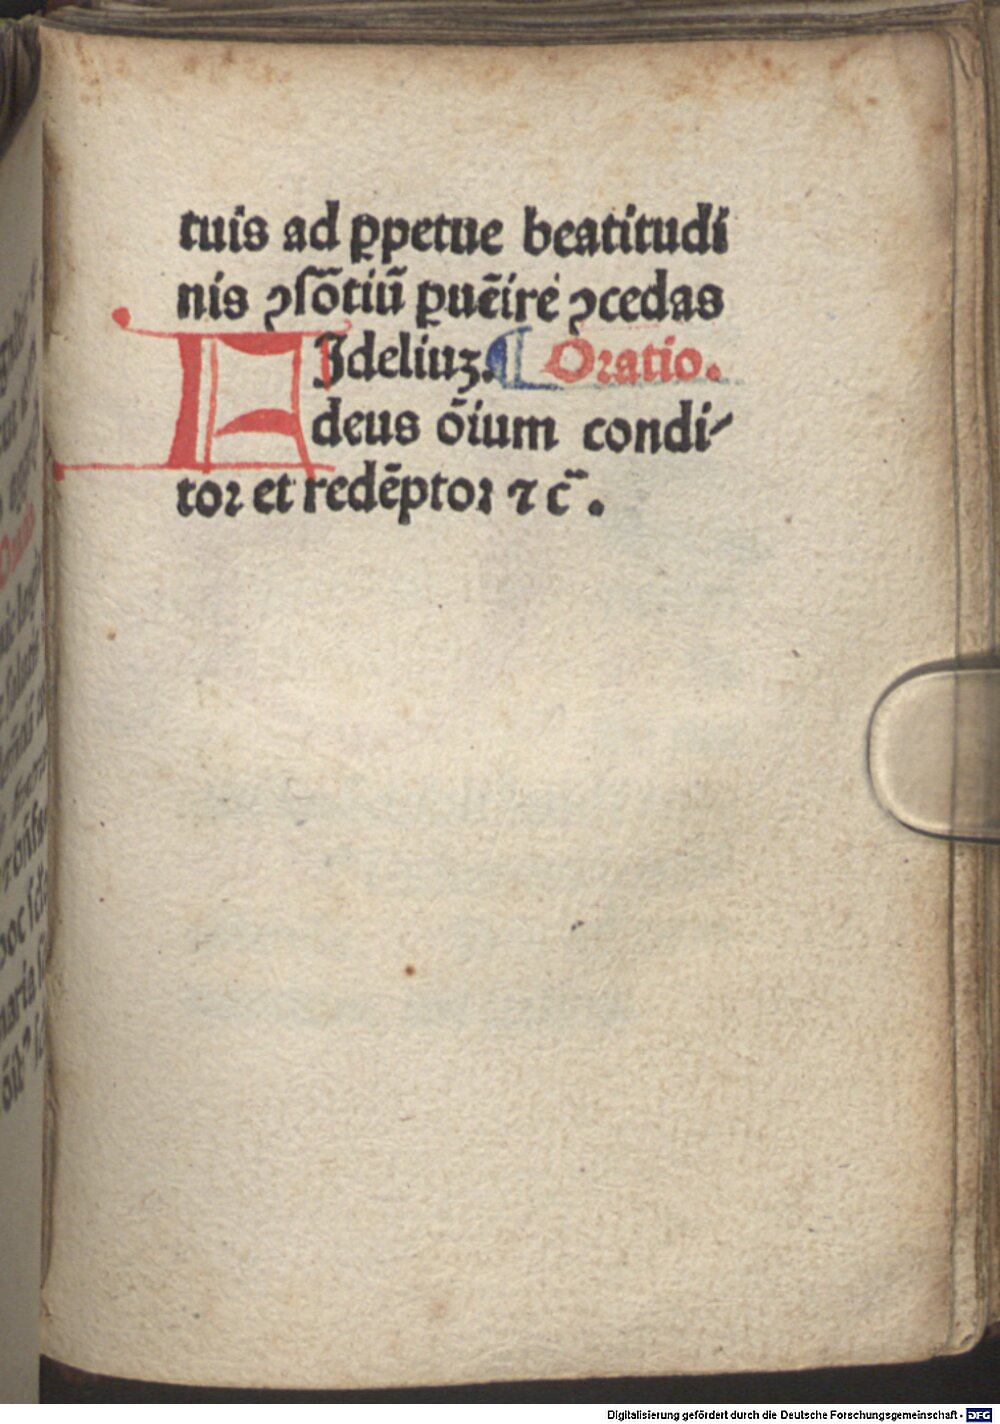 tuis ad ꝑpetue beatitudi
nis ꝯſõtiũ ꝑuẽire ꝯcedas
FIdeliuꝫ. ¶ Oꝛatio.
deus õium condi⸗
toꝛ et redẽptoꝛ ⁊ c̃.
Digitalisierung gefördert durch die Deutsche Forschungsgemeinschaft - DFG